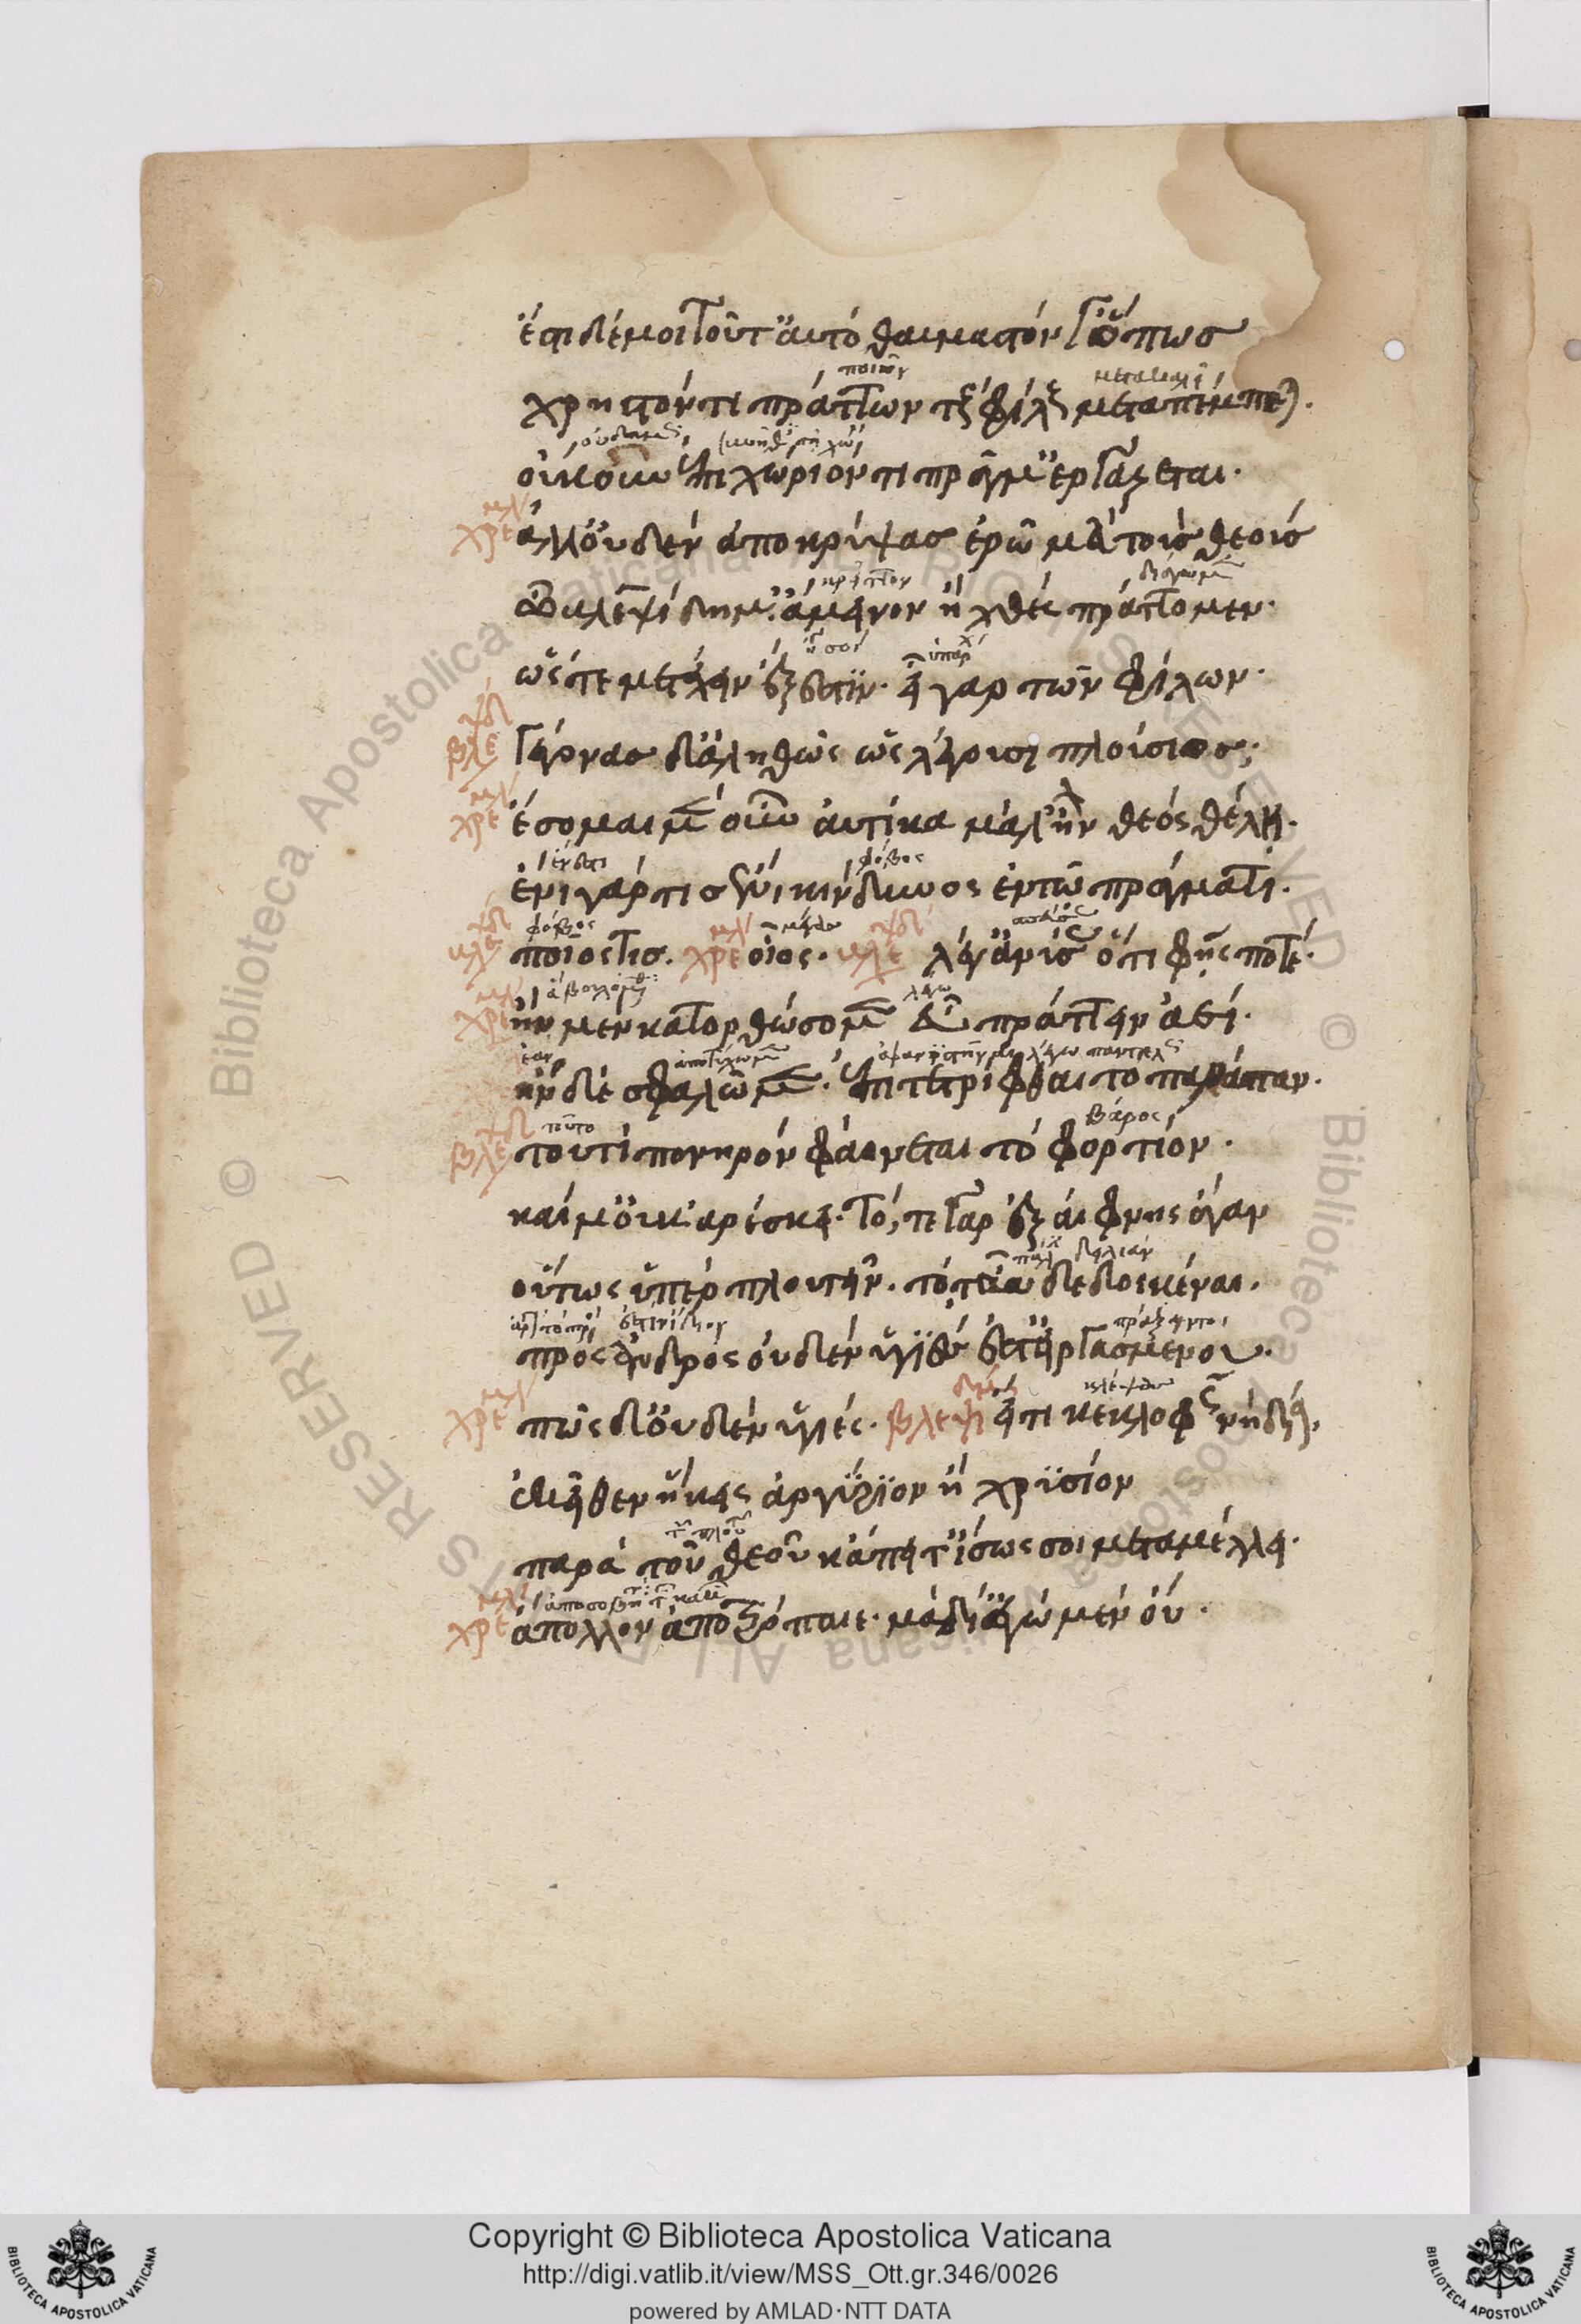 ἔστι δέ μοι τοῦτ' αὐτὸ θαυμαστόν γ' ὅπως
ποιῶν
χρηστόν τι πράττων τοὺς φίλους μεταπέμπεται.
οὔκουν ἐπιχώριόν τι πρᾶγμ' ἐργάζεται.
χρε ἀλλ' οὐδὲν ἀποκρύψας ἐρῶ μὰ τοὺς θεούς
ὦ βλεψίδημ' ἄμεινον ἢ χθὲς πράττομεν.
ὥστε μετέχειν ἔξεστιν. εἶ γὰρ τῶν φίλων.
βλε γέγονας δ' ἀληθῶς ὡς λέγουσι πλούσιος;
χρε ἔσομαι μὲν οὖν αὐτίκα μάλ' ἢν θεὸς θέλῃ.
φόβος
ἔνι γάρ τις ἔνι κίνδυνος ἐν τῷ πράγματι.
φόβος
ποῖός τις. χρε οἷος. λέγ' ἀνύσας ὅτι φῄς ποτέ.
λέγω
χρε ἢν μὲν κατορθώσομεν εὖ πράττειν ἀεί.
ἢν δὲ σφαλῶμεν. ἐπιτετρίφθαι τὸ παράπαν.
τοῦτο βάρος
βλε τουτὶ πονηρὸν φαίνεται τὸ φορτίον.
καί μ' οὐκ ἀρέσκει. τό, τε γὰρ ἐξαίφνης ἄγαν
οὕτως ὑπερπλουτεῖν. τό, τ' αὖ δεδοικέναι.
πρὸς ἀνδρὸς οὐδὲν ὑγιές ἐστ' εἰργασμένου.
χρε πῶς δ' οὐδὲν ὑγιές. βλεψι εἴ τι κεκλοφὼς νὴ δία.
ἐκεῖθεν ἥκεις ἀργύριον ἢ χρυσίον
παρὰ τοῦ θεοῦ κἄπειτ' ἴσως σοι μεταμέλει.
χρε ἄπολλον ἀποτρόπαιε. μὰ δί' ἐγὼ μὲν οὔ.
Copyright © Biblioteca Apostolica Vaticana
http://digi.vatlib.it/view/MSS_Ott.gr.346/0026
powered by AMLAD·NTT DATA
BIBLIOTECA APOSTOLICA VATICANA
BIBLIOTECA APOSTOLICA VATICANA